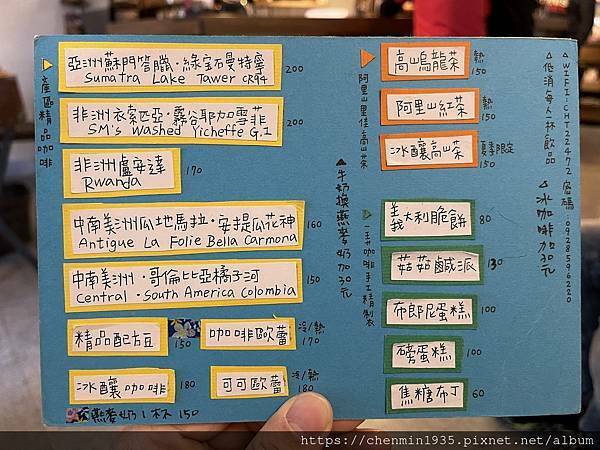 產區精品咖啡
亞洲蘇門答臘·綠寶石曼特寧
Sumatra Lake Tawer CR94
200
非洲衣索匹亞·霧谷耶加雪菲
SM's Washed Yicheffe G.1
200
非洲盧安達
Rwanda
170
中南美洲瓜地馬拉·安提瓜花神
Antigue La Folie Bella Carmona
160
中南美洲·哥倫比亞橘子河
Central·South America Colombia
150
精品配方豆
150
咖啡歐蕾
冷/熱
170
冰釀咖啡
180
可可歐蕾
冷/熱
180
燕麥奶1杯 150
牛奶換燕麥奶加30元
阿里山里佳高山茶
高山烏龍茶
熱
150
阿里山紅茶
熱
150
冰釀高山茶
夏季限定
150
咖啡手工精製
義大利脆餅
80
菇菇鹹派
130
布朗尼蛋糕
100
磅蛋糕
100
焦糖布丁
60
低消每人一杯飲品
冰咖啡加30元
WIFI:CHT22472 密碼:0928596220
https://chenmin1935.pixnet.net/album